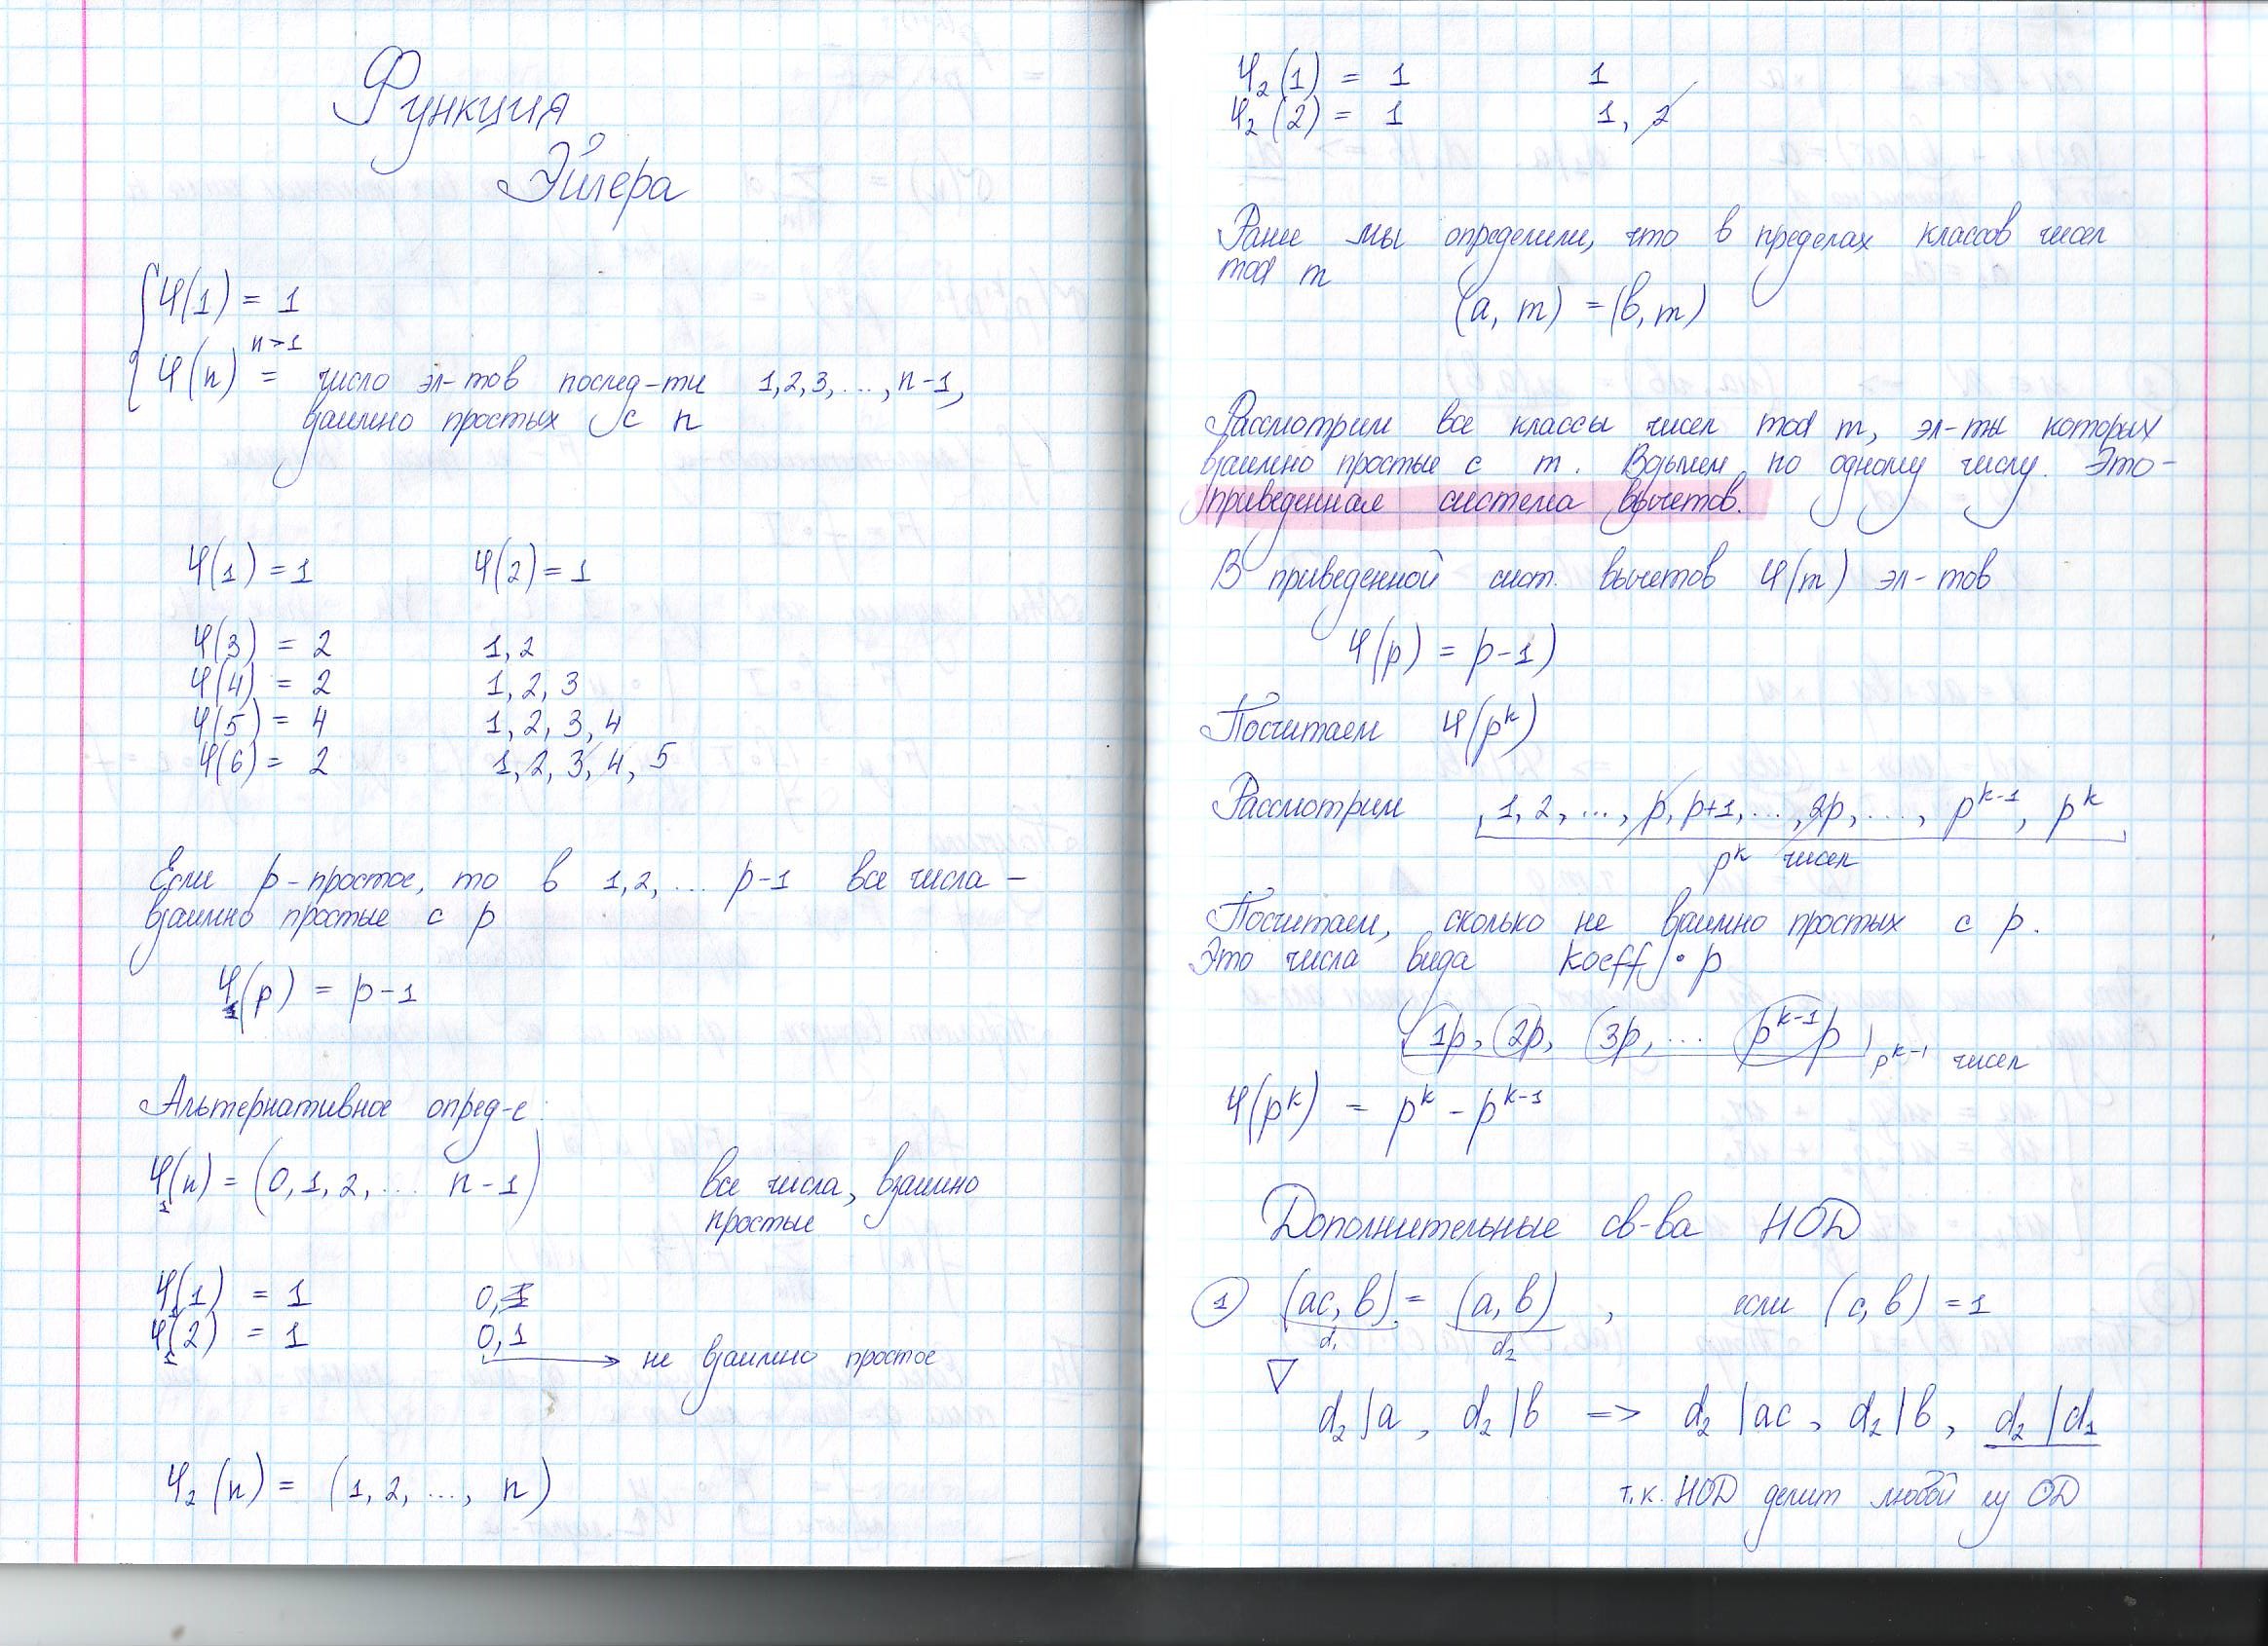 Функция
Эйлера
φ(1) = 1
n>1
φ(n) = число эл-тов послед-ти 1,2,3, ..., n-1,
взаимно простых с n
φ(1) = 1 φ(2) = 1
φ(3) = 2 1, 2
φ(4) = 2 1, 2, 3
φ(5) = 4 1, 2, 3, 4
φ(6) = 2 1, 2, 3, 4, 5
Если p - простое, то в 1,2, ... p-1 все числа -
взаимно простые с p
φ₁(p) = p-1
Альтернативное опред-е:
φ₁(n) = (0, 1, 2, ... n-1) все числа, взаимно
простые
φ₁(1) = 1 0, 1
φ₁(2) = 1 0, 1
не взаимно простое
φ₂(n) = (1, 2, ..., n)
φ₂(1) = 1 1
φ₂(2) = 1 1, 2
Ранее мы определили, что в пределах классов чисел
mod m
(a, m) = (b, m)
Рассмотрим все классы чисел mod m, эл-ты которых
взаимно простые с m. Возьмем по одному числу. Это -
приведенная система вычетов.
В приведенной сист. вычетов φ(m) эл-тов
φ(p) = p-1)
Посчитаем φ(pᵏ)
Рассмотрим 1, 2, ..., p, p+1, ..., 2p, ..., pᵏ⁻¹, pᵏ
pᵏ чисел
Посчитаем, сколько не взаимно простых с p.
Это числа вида koeff · p
1p, 2p, 3p, ... pᵏ⁻¹p
pᵏ⁻¹ чисел
φ(pᵏ) = pᵏ - pᵏ⁻¹
Дополнительные св-ва НОД
① (ac, b) = (a, b) , если (c, b) = 1
d₁ d₂
▽
d₂ | a , d₂ | b => d₂ | ac , d₂ | b , d₂ | d₁
т.к. НОД делит любой из ОД